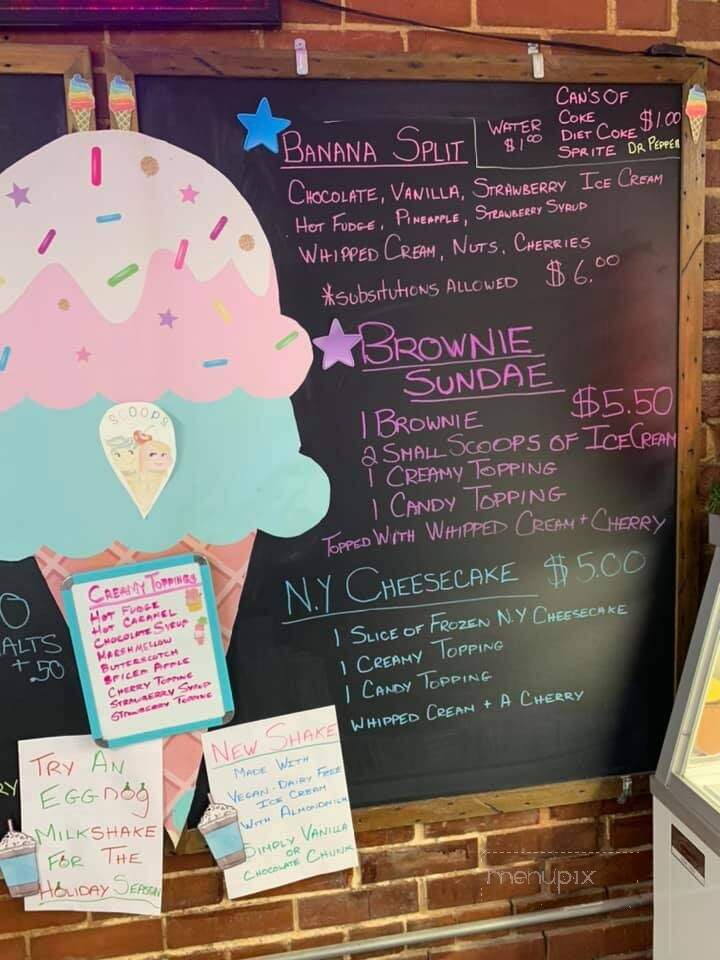 BANANA SPLIT
CHOCOLATE, VANILLA, STRAWBERRY ICE CREAM
HOT FUDGE, PINEAPPLE, STRAWBERRY SYRUP
WHIPPED CREAM, NUTS, CHERRIES
*SUBSITUTIONS ALLOWED $6.00
WATER
$1.00
CAN'S OF
COKE
DIET COKE $1.00
SPRITE DR PEPPER
BROWNIE
SUNDAE
$5.50
1 BROWNIE
2 SMALL SCOOPS OF ICE CREAM
1 CREAMY TOPPING
1 CANDY TOPPING
TOPPED WITH WHIPPED CREAM + CHERRY
N.Y CHEESECAKE $5.00
1 SLICE OF FROZEN N.Y CHEESECAKE
1 CREAMY TOPPING
1 CANDY TOPPING
WHIPPED CREAM + A CHERRY
SCOOPS
CREAMY TOPPINGS
HOT FUDGE
HOT CARAMEL
CHOCOLATE SYRUP
MARSHMELLOW
BUTTERSCOTCH
SPICED APPLE
CHERRY TOPPING
STRAWBERRY SYRUP
STRAWBERRY TOPPING
ALTS
+ 50
TRY AN
EGGNOG
MILKSHAKE
FOR THE
HOLIDAY SEASON
NEW SHAKE
MADE WITH
VEGAN-DAIRY FREE
ICE CREAM
WITH ALMONDMILK
SIMPLY VANILLA
OR
CHOCOLATE CHUNK
menupix